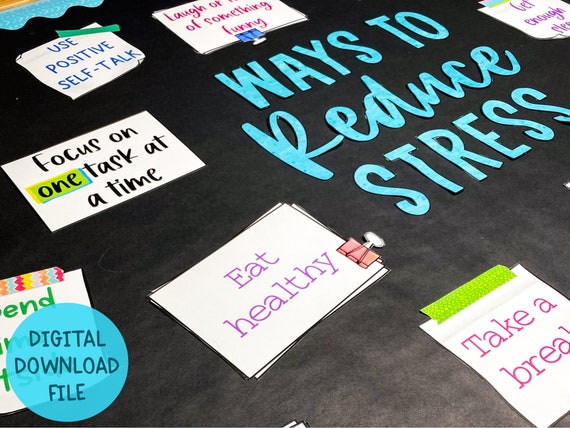 Laugh or
of something
funny
Get enough
USE
POSITIVE
SELF-TALK
WAYS TO
Reduce
STRESS
Focus on
one task at
a time
Eat
healthy
Take a
DIGITAL
DOWNLOAD
FILE